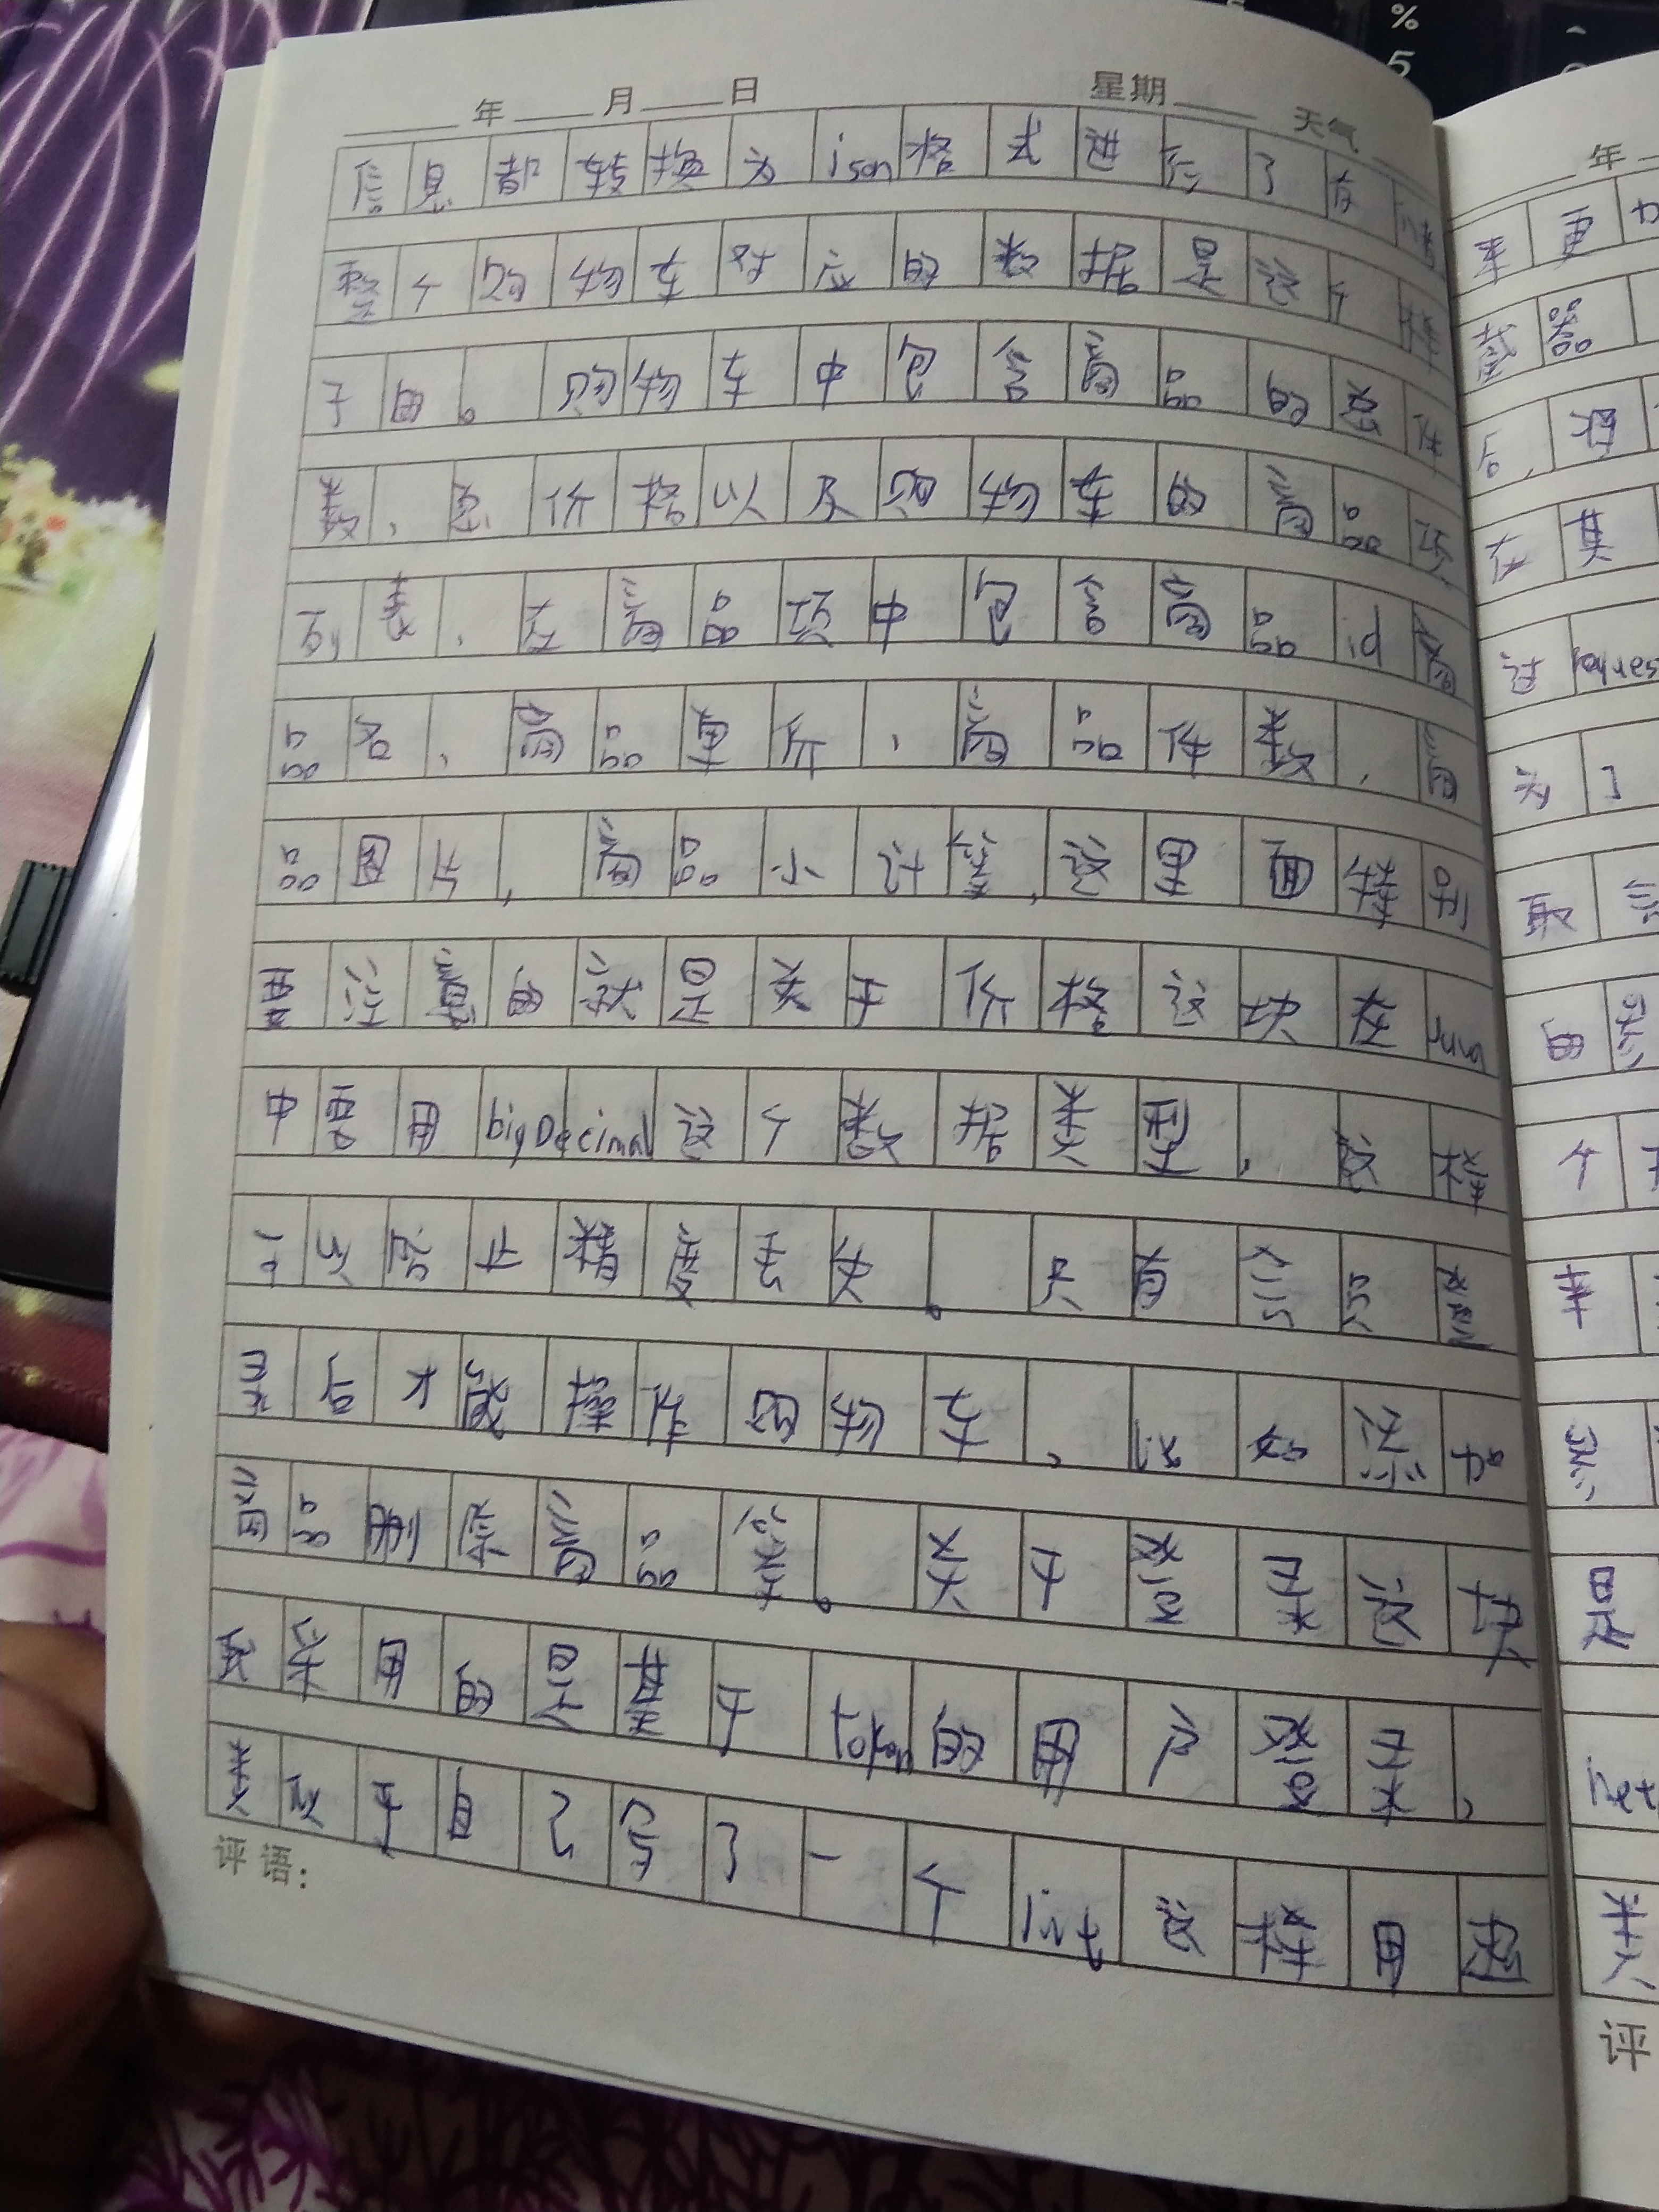 年 月 日 星期 天气
信息都转换为json格式进行了存储
整个购物车对应的数据是这个样
子的。购物车中包含商品的总件
数、总价格以及购物车的商品项
列表、在商品项中包含商品id商
品名、商品单价、商品件数、商
品图片,商品小计等,这里面特别
要注意的就是关于价格这块在Java
中要用bigDecimal这个数据类型,这样
可以防止精度丢失。只有经过登
录后才能操作购物车,比如添加
商品删除商品等。关于登录这块
我采用的是基于token的用户登录,
类似于自己写了一个list这样用
评语:
年
来更
在其
过reques
为了
最
的
个
样
是
类
评